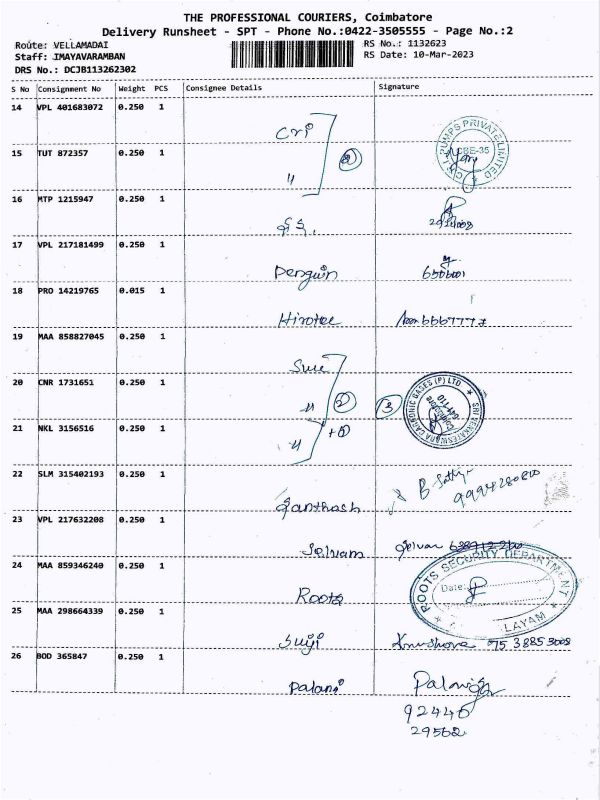 THE PROFESSIONAL COURIERS, Coimbatore
Delivery Runsheet - SPT - Phone No.:0422-3505555 - Page No.:2
Route: VELLAMADAI
Staff: IMAYAVARAMBAN
DRS No.: DCJB113262302
RS No.: 1132623
RS Date: 10-Mar-2023
S No Consignment No Weight PCS Consignee Details Signature
14 VPL 401683072 0.250 1
Cri
PUMPS PRIVATE LIMITED
CBE-35
15 TUT 872357 0.250 1
"
2
16 MTP 1215947 0.250 1
17 VPL 217181499 0.250 1
Penguin
6506001
18 PRO 14219765 0.015 1
Hirotec
6667777
19 MAA 858827045 0.250 1
20 CNR 1731651 0.250 1
"
2
3
SRI VENKATESWARA CARBONIC GASES (P) LTD
Coimbatore
641 110
21 NKL 3156516 0.250 1
"
22 SLM 315402193 0.250 1
Santhosh
B Sathy
23 VPL 217632208 0.250 1
Selvam
Selvam
24 MAA 859346240 0.250 1
Roots
ROOTS SECURITY DEPARTMENT
Date:
LAYAM
25 MAA 298664339 0.250 1
Suji
75 3885 3008
26 BOD 365847 0.250 1
Palani
92446
29562